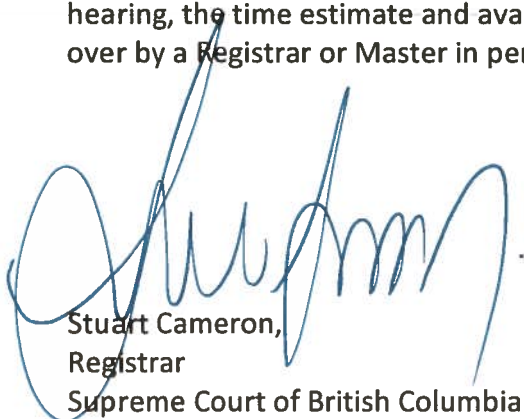 hearing, the time estimate and ava
over by a Registrar or Master in per
Stuart Cameron,
Registrar
Supreme Court of British Columbia